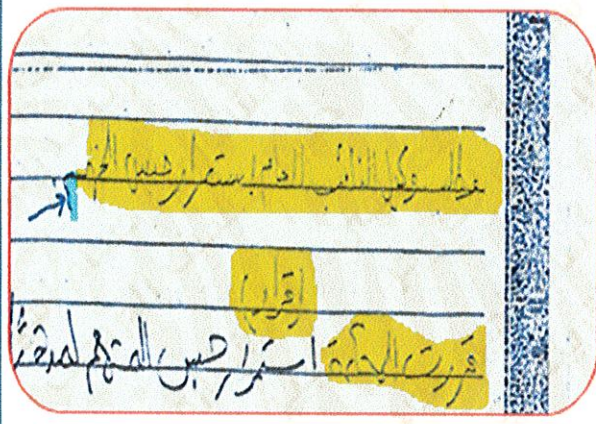 وطلب وكيل النائب العام استمرار حبس المتهم
(قرار)
قررت المحكمة استمرار حبس المتهم لمدة